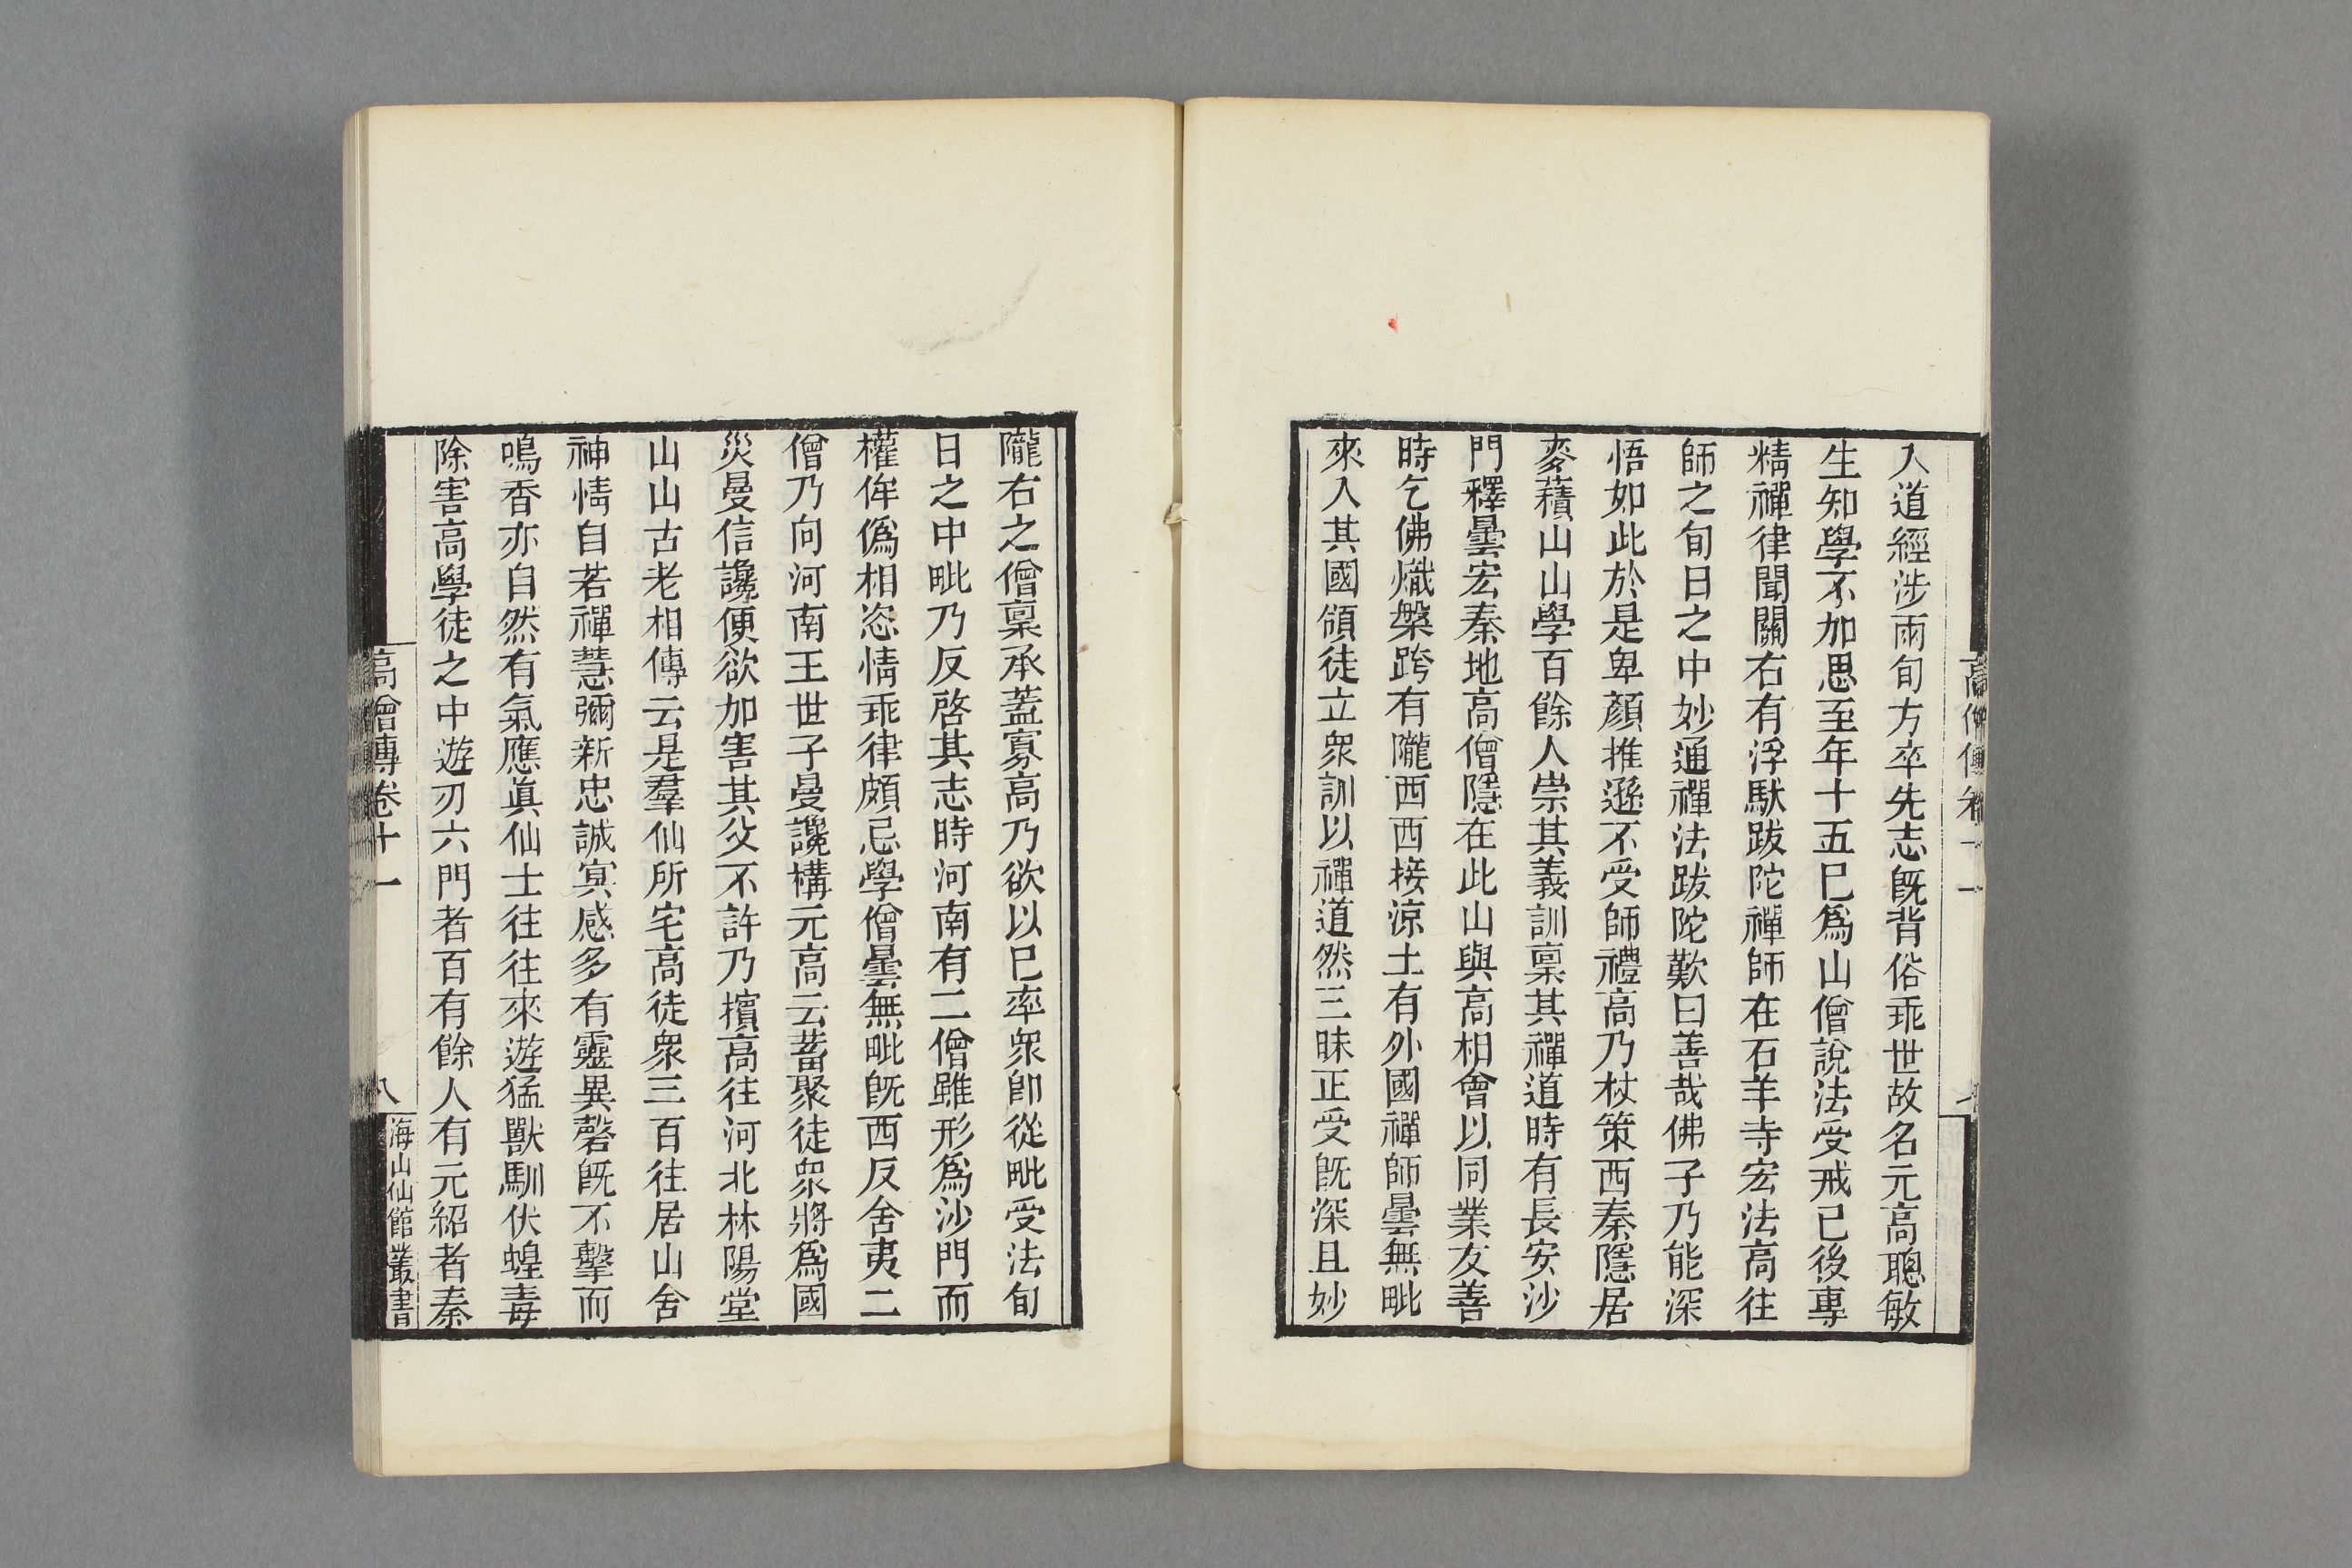 入道經涉兩旬方卒先志旣背俗乖世故名元高聰敏
生知學不加思至年十五巳爲山僧說法受戒已後專
精禪律聞關右有浮馱跋陀禪師在石羊寺宏法高往
師之旬日之中妙通禪法跋陀歎曰善哉佛子乃能深
悟如此於是卑顏推遜不受師禮高乃杖策西秦隱居
麥䅡山山學百餘人崇其義訓稟其禪道時有長安沙
門釋曇宏秦地高僧隱在此山與高相會以同業友善
時乞佛熾槃跨有隴西西接涼土有外國禪師曇無毗
來入其國領徒立衆訓以禪道然三昧正受旣深且妙
隴右之僧稟承蓋寡高乃欲以巳率衆卽從毗受法旬
日之中毗乃反啓其志時河南有二僧雖形爲沙門而
權侔僞相恣情乖律頗忌學僧曇無毗旣西反舍夷二
僧乃向河南王世子曼讒構元高云蓄聚徒衆將爲國
災曼信讒便欲加害其父不許乃擯高往河北林陽堂
山山古老相傳云是羣仙所宅高徒衆三百往居山舍
神情自若禪慧彌新忠誠冥感多有靈異磬旣不擊而
鳴香亦自然有氣應眞仙士往往來遊猛獸馴伏蝗毒
除害高學徒之中遊刃六門者百有餘人有元紹者秦
高僧傳卷十一
八
海山仙館叢書